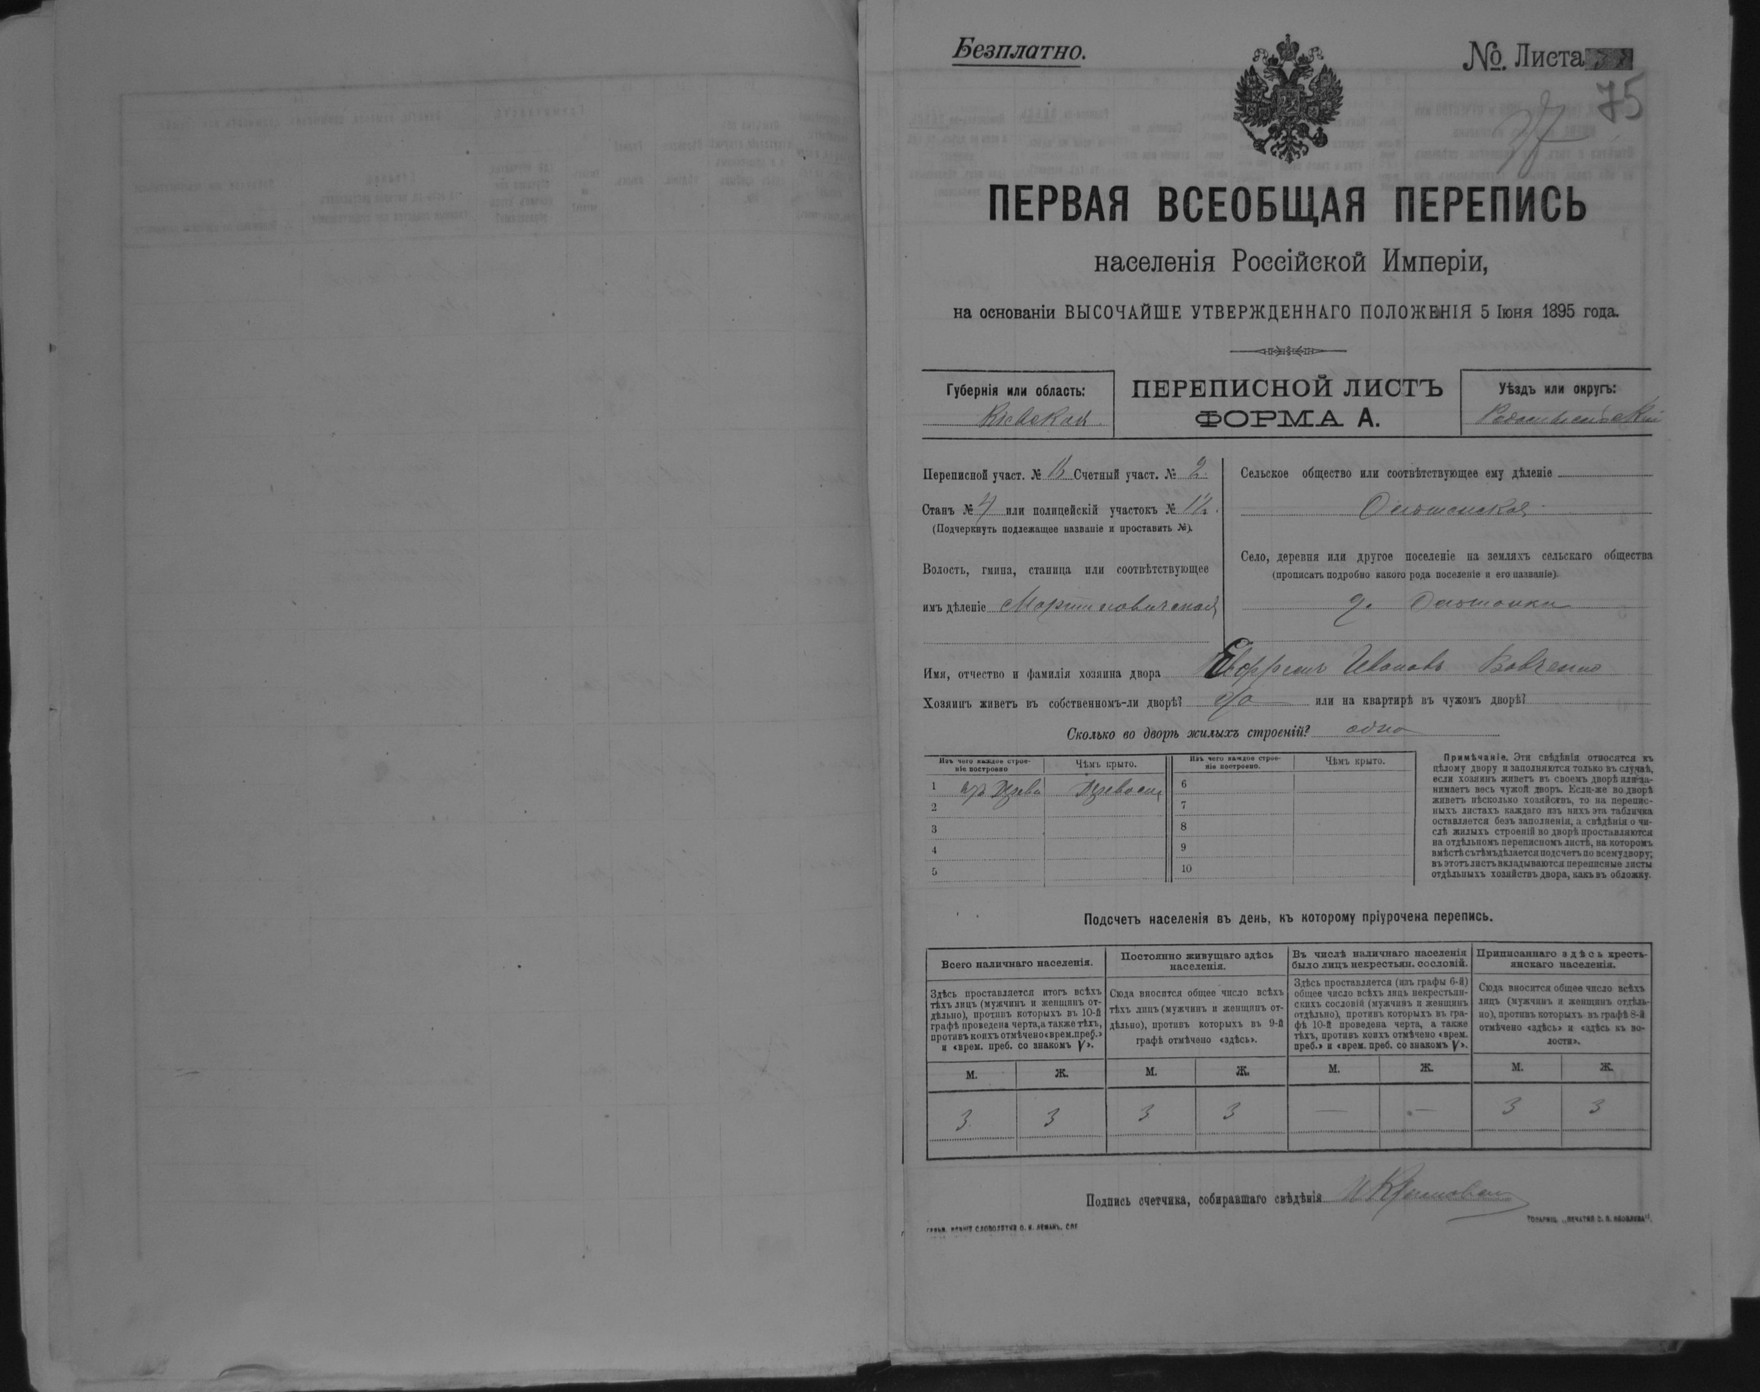 Безплатно.
№ Листа
75
ПЕРВАЯ ВСЕОБЩАЯ ПЕРЕПИСЬ
населенія Россійской Имперіи,
на основаніи ВЫСОЧАЙШЕ УТВЕРЖДЕННАГО ПОЛОЖЕНІЯ 5 Іюня 1895 года.
Губернія или область:
Кіевская
ПЕРЕПИСНОЙ ЛИСТЪ
ФОРМА А.
Уѣздъ или округъ:
Переписной участ. № Счетный участ. № 2
Станъ № 4 или полицейскій участокъ №
(Подчеркнуть подлежащее названіе и проставить №).
Волость, гмина, станица или соотвѣтствующее
имъ дѣленіе Мартиновичская
Сельское общество или соотвѣтствующее ему дѣленіе
Село, деревня или другое поселеніе на земляхъ сельскаго общества
(прописать подробно какого рода поселеніе и его названіе)
Имя, отчество и фамилія хозяина двора Ивановъ Вовченко
Хозяинъ живетъ въ собственномъ-ли дворѣ? да или на квартирѣ въ чужомъ дворѣ?
Сколько во дворѣ жилыхъ строеній? одно
Изъ чего каждое строе-
ніе построено
Чѣмъ крыто.
Изъ чего каждое строе-
ніе построено.
Чѣмъ крыто.
1
2
3
4
5
6
7
8
9
10
Примѣчаніе. Эти свѣдѣнія относятся къ
цѣлому двору и заполняются только въ случаѣ,
если хозяинъ живетъ въ своемъ дворѣ или за-
нимаетъ весь чужой дворъ. Если-же во дворѣ
живетъ нѣсколько хозяйствъ, то на перепис-
ныхъ листахъ каждаго изъ нихъ эта табличка
оставляется безъ заполненія, а свѣдѣнія о чи-
слѣ жилыхъ строеній во дворѣ проставляются
на отдѣльномъ переписномъ листѣ, на которомъ
вмѣстѣ съ тѣмъ дѣлается подсчетъ по всему двору;
въ этотъ листъ вкладываются переписные листы
отдѣльныхъ хозяйствъ двора, какъ въ обложку.
Подсчетъ населенія въ день, къ которому пріурочена перепись.
Всего наличнаго населенія.
Здѣсь проставляется итогъ всѣхъ
тѣхъ лицъ (мужчинъ и женщинъ от-
дѣльно), противъ которыхъ въ 10-й
графѣ проведена черта, а также тѣхъ,
противъ коихъ отмѣчено «врем. преб.»
и «врем. преб. со знакомъ V».
Постоянно живущаго здѣсь
населенія.
Сюда вносится общее число всѣхъ
тѣхъ лицъ (мужчинъ и женщинъ от-
дѣльно), противъ которыхъ въ 9-й
графѣ отмѣчено «здѣсь».
Въ числѣ наличнаго населенія
было лицъ некрестьян. сословій.
Здѣсь проставляется (изъ графы 6-й)
общее число всѣхъ лицъ некрестьян-
скихъ сословій (мужчинъ и женщинъ
отдѣльно), противъ которыхъ въ гра-
фѣ 10-й проведена черта, а также
тѣхъ, противъ коихъ отмѣчено «врем.
преб.» и «врем. преб. со знакомъ V».
Приписаннаго здѣсь кресть-
янскаго населенія.
Сюда вносится общее число всѣхъ
лицъ (мужчинъ и женщинъ отдѣль-
но), противъ которыхъ въ графѣ 8-й
отмѣчено «здѣсь» и «здѣсь къ во-
лости».
М. Ж. М. Ж. М. Ж. М. Ж.
3 3 3 3 — — 3 3
Подпись счетчика, собиравшаго свѣдѣнія